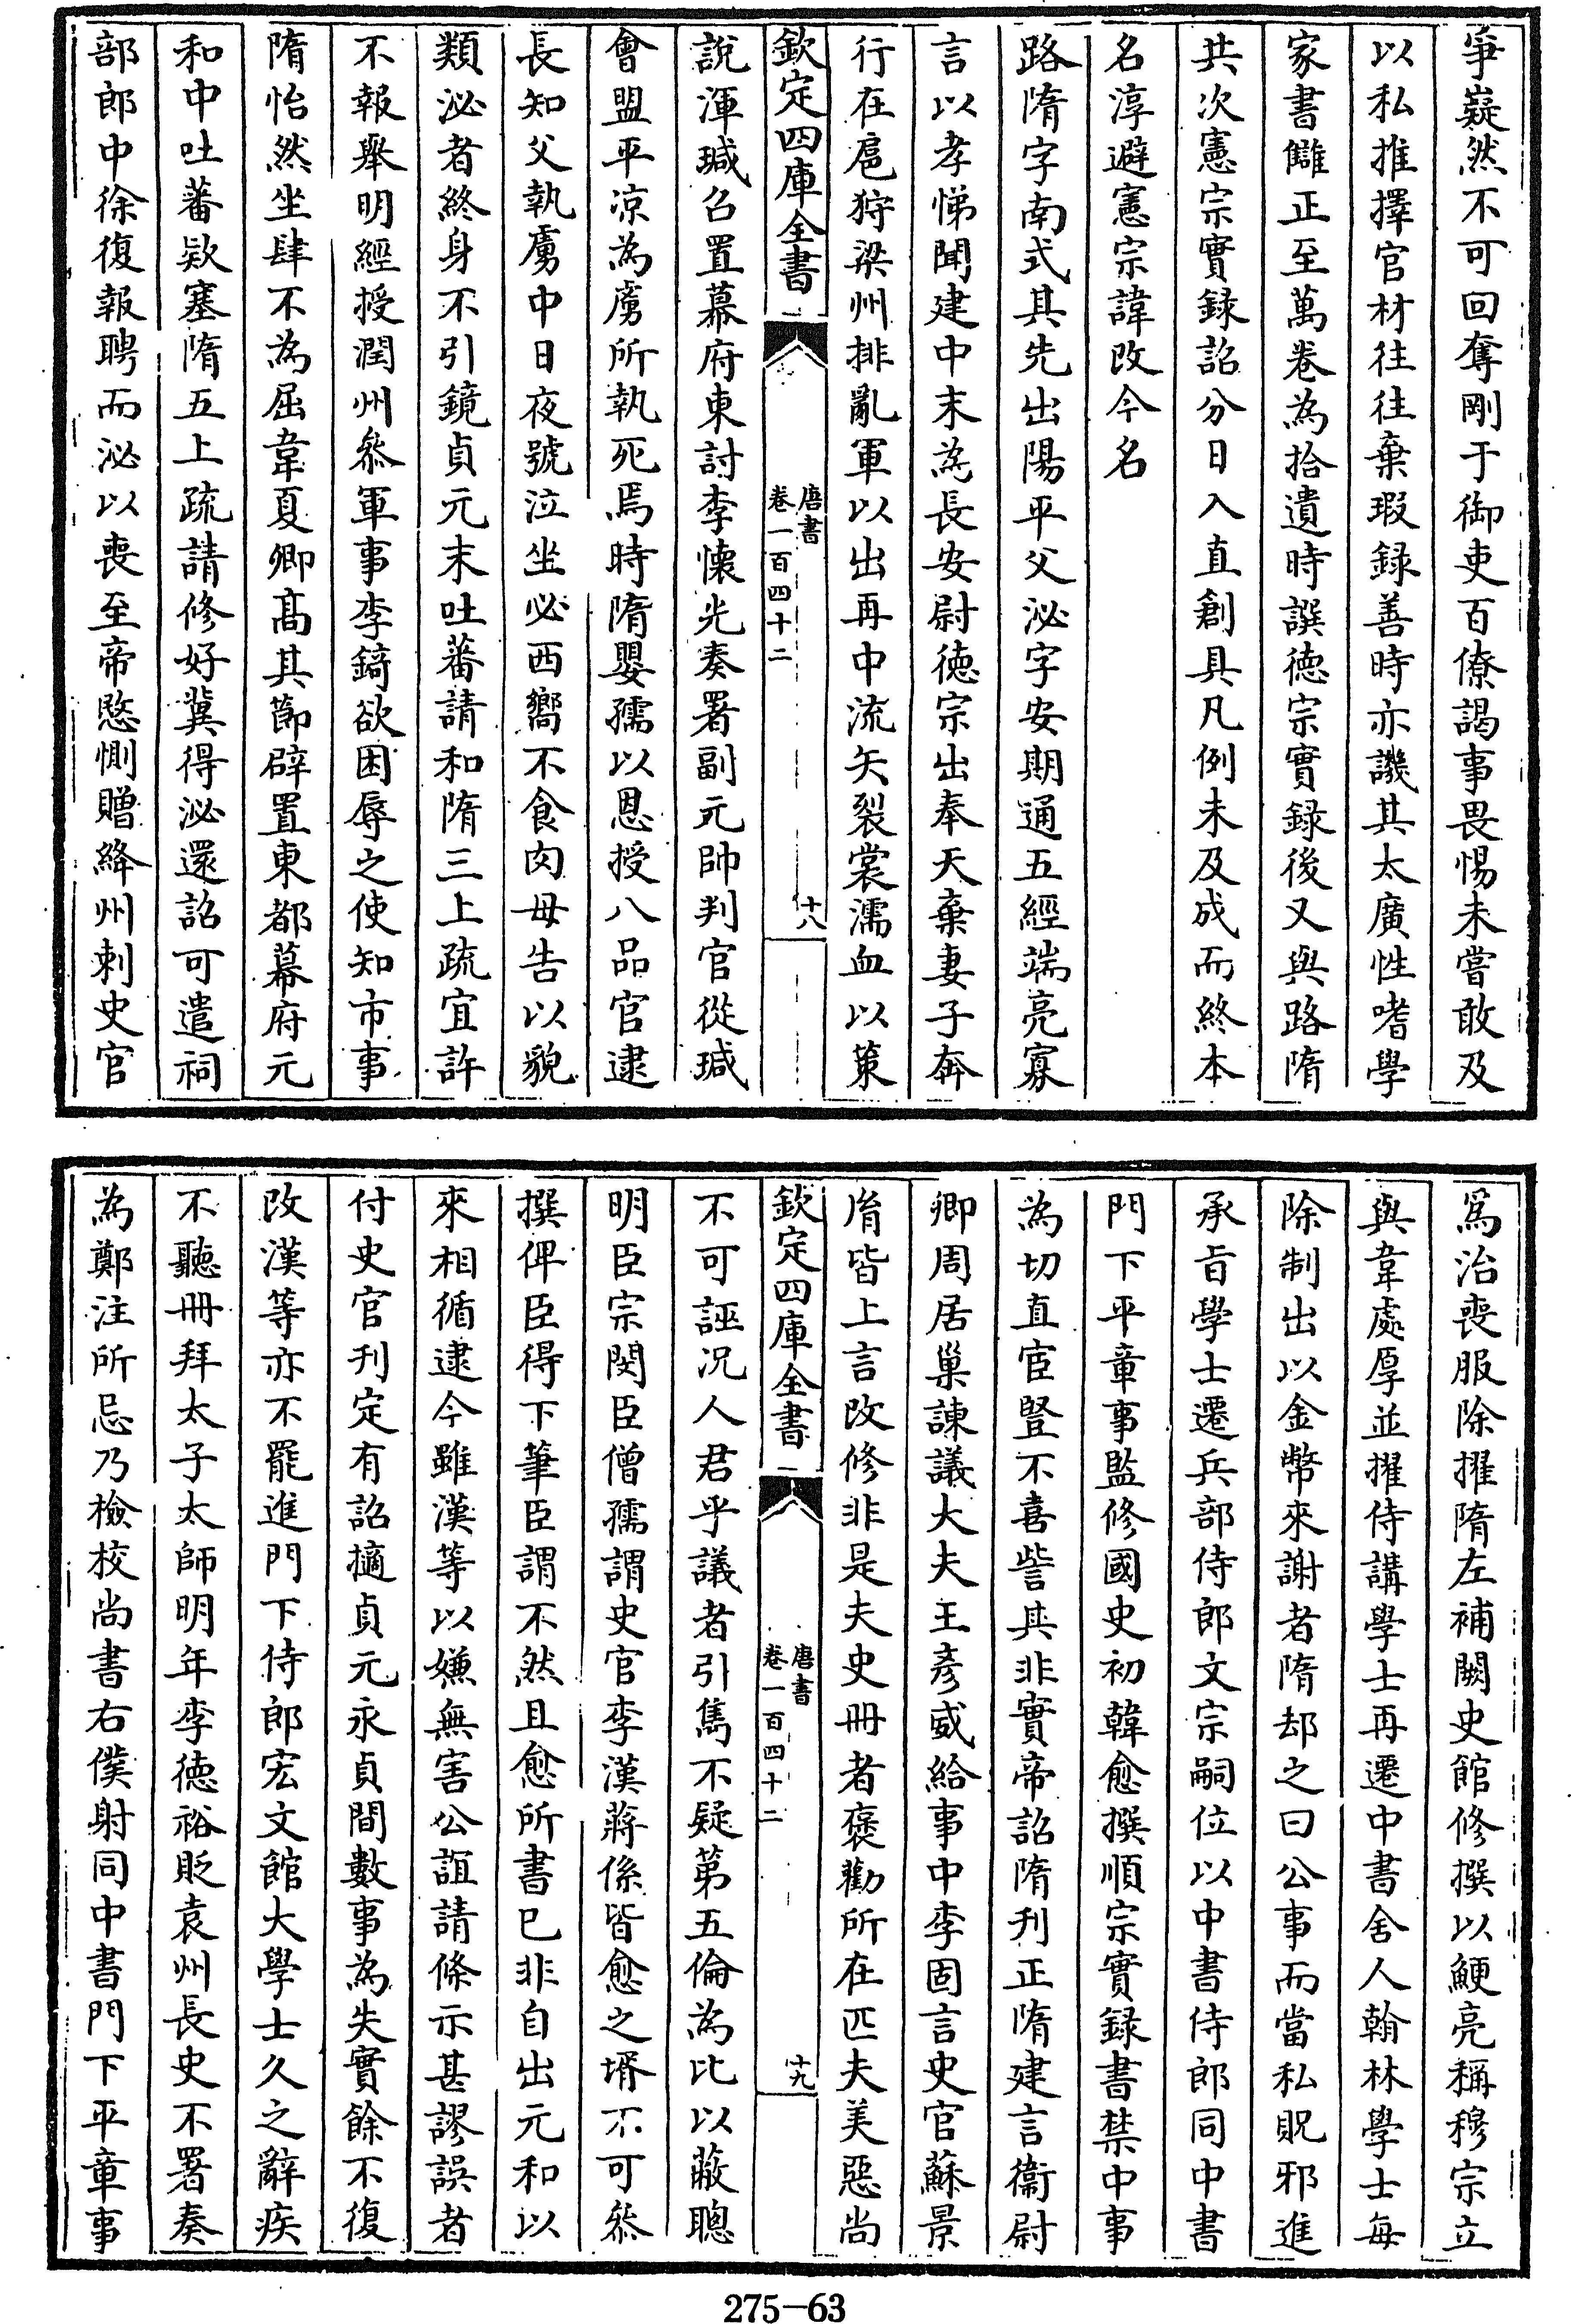 爭嶷然不可回奪剛于御吏百僚謁事畏惕未嘗敢及
以私推擇官材往往棄瑕録善時亦譏其太廣性嗜學
家書讎正至萬卷為拾遺時譔徳宗實録後又與路隋
共次憲宗實録詔分日入直創具凡例未及成而終本
名淳避憲宗諱改今名
路隋字南式其先出陽平父泌字安期通五經端亮寡
言以孝悌聞建中末為長安尉徳宗出奉天棄妻子奔
行在扈狩梁州排亂軍以出再中流矢裂裳濡血以策
欽定四庫全書
唐書
卷一百四十二
十八
說渾瑊召置幕府東討李懐光奏署副元帥判官從瑊
會盟平凉為虜所執死焉時隋嬰孺以恩授八品官逮
長知父執虜中日夜號泣坐必西嚮不食肉母告以貌
類泌者終身不引鏡貞元末吐蕃請和隋三上疏宜許
不報舉明經授潤州叅軍事李錡欲困辱之使知市事
隋怡然坐肆不為屈韋夏卿髙其節辟置東都幕府元
和中吐蕃欵塞隋五上疏請修好冀得泌還詔可遣祠
部郎中徐復報聘而泌以喪至帝愍惻贈絳州刺史官
爲治喪服除擢隋左補闕史館修撰以鯁亮稱穆宗立
與韋處厚並擢侍講學士再遷中書舍人翰林學士每
除制出以金幣來謝者隋却之曰公事而當私貺邪進
承旨學士遷兵部侍郎文宗嗣位以中書侍郎同中書
門下平章事監修國史初韓愈撰順宗實録書禁中事
為切直宦豎不喜訾其非實帝詔隋刋正隋建言衞尉
卿周居巢諫議大夫王彦威給事中李固言史官蘇景
脩皆上言改修非是夫史冊者褒勸所在匹夫美惡尚
欽定四庫全書
唐書
卷一百四十二
十九
不可誣况人君乎議者引雋不疑第五倫為比以蔽聰
明臣宗閔臣僧孺謂史官李漢蔣係皆愈之壻不可叅
撰俾臣得下筆臣謂不然且愈所書已非自出元和以
來相循逮今雖漢等以嫌無害公誼請條示甚謬誤者
付史官刋定有詔擿貞元永貞間數事為失實餘不復
改漢等亦不罷進門下侍郎宏文館大學士久之辭疾
不聽冊拜太子太師明年李徳裕貶袁州長史不署奏
為鄭注所忌乃檢校尚書右僕射同中書門下平章事
275-63